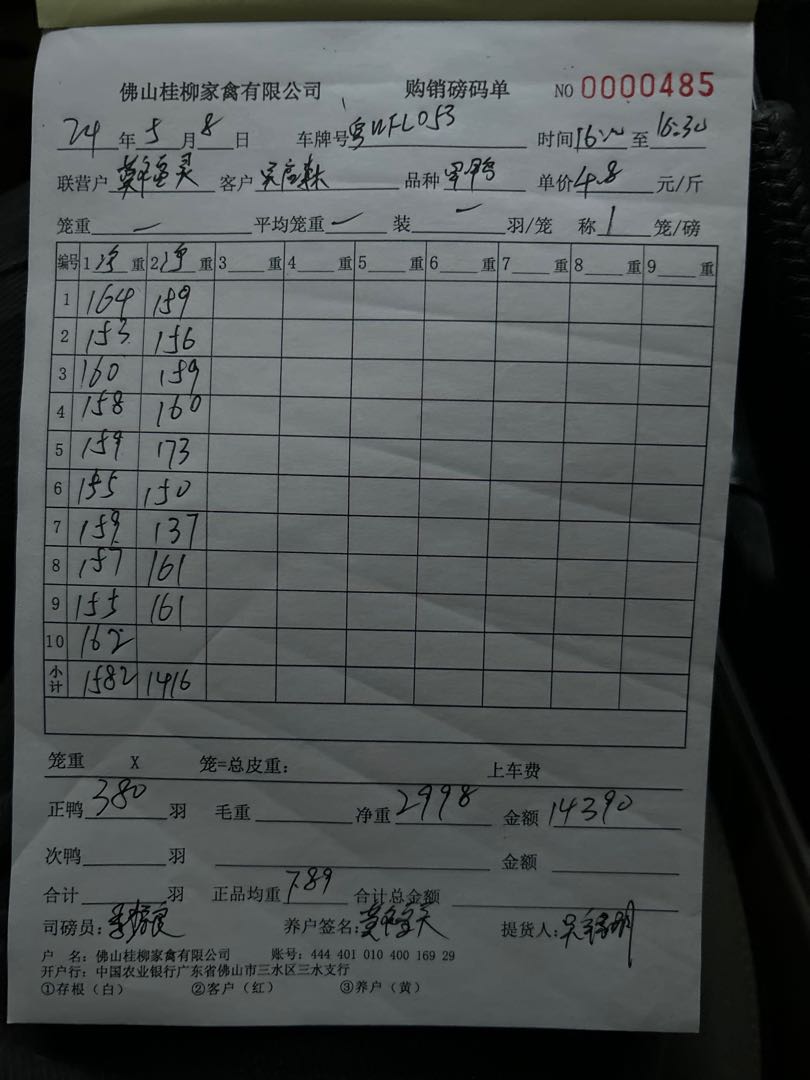 佛山桂柳家禽有限公司 购销磅码单 NO 0000485
24年5月8日 车牌号 053 时间16: 至16:30
联营户 客户 品种 单价4.8元/斤
笼重 — 平均笼重 — 装 — 羽/笼 称 1 笼/磅
编号 1净重 2净重 3 重 4 重 5 重 6 重 7 重 8 重 9 重
1 164 159
2 153 156
3 160 159
4 158 160
5 159 173
6 155 150
7 159 137
8 157 161
9 155 161
10 162
小计 1582 1416
笼重 X 笼=总皮重: 上车费
正鸭 380 羽 毛重 净重 2998 金额 14390
次鸭 羽 金额
合计 羽 正品均重 7.89 合计总金额
司磅员: 养户签名: 提货人:
户 名: 佛山桂柳家禽有限公司 账号: 444 401 010 400 169 29
开户行: 中国农业银行广东省佛山市三水区三水支行
①存根(白) ②客户(红) ③养户(黄)